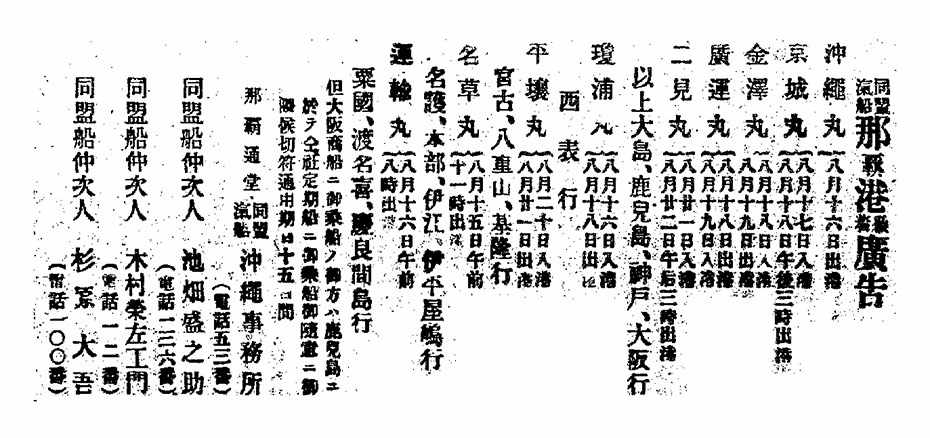 同盟汽船那覇港發着廣告
沖繩丸(八月十六日出港
京城丸(八月十七日入港
八月十八日午後三時出港
金澤丸(八月十八日入港
八月十九日出港
廣運丸(八月十九日入港
八月廿一日出港
二見丸(八月廿一日入港
八月廿二日午后三時出港
以上大島、鹿兒島、神戶、大阪行
瓊浦丸(八月十六日入港
八月十八日出港
西表行
平壤丸(八月二十日入港
八月廿一日出港
宮古、八重山、基隆行
名草丸(八月十五日午前
十一時出港
名護、本部、伊江、伊平屋嶋行
運輸丸(八月十六日午前
八時出港
粟國、渡名喜、慶良間島行
但大阪商船ニ御乘船ノ御方ハ鹿兒島ニ
於テ仝社定期船ニ御乘船御隨意ニ御
座候切符通用期は十五日間
那覇通堂同盟汽船沖繩事務所
(電話五三番)
同盟船仲次人 池畑盛之助
(電話一二三六番)
同盟船仲次人 木村榮左工門
(電話一一二番)
同盟船仲次人 杉冡大吾
(電話一〇〇番)